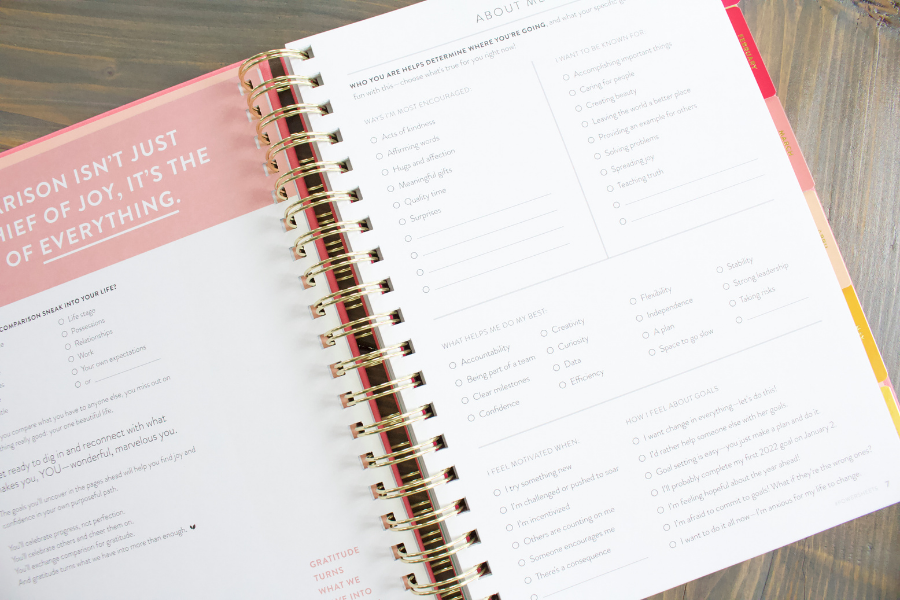 ARISON ISN'T JUST
HIEF OF JOY, IT'S THE
OF EVERYTHING.
COMPARISON SNEAK INTO YOUR LIFE?
Life stage
Possessions
Relationships
Work
Your own expectations
or
you compare what you have to anyone else, you miss out on
thing really good: your one beautiful life.
et ready to dig in and reconnect with what
akes you, YOU—wonderful, marvelous you.
The goals you'll uncover in the pages ahead will help you find joy and
confidence in your own purposeful path.
You'll celebrate progress, not perfection.
You'll celebrate others and cheer them on.
You'll exchange comparison for gratitude.
And gratitude turns what we have into more than enough.
GRATITUDE
TURNS
WHAT WE
VE INTO
ABOUT ME
WHO YOU ARE HELPS DETERMINE WHERE YOU'RE GOING, and what your specific
fun with this—choose what's true for you right now!
WAYS I'M MOST ENCOURAGED:
Acts of kindness
Affirming words
Hugs and affection
Meaningful gifts
Quality time
Surprises
I WANT TO BE KNOWN FOR:
Accomplishing important things
Caring for people
Creating beauty
Leaving the world a better place
Providing an example for others
Solving problems
Spreading joy
Teaching truth
WHAT HELPS ME DO MY BEST:
Accountability
Being part of a team
Clear milestones
Confidence
Creativity
Curiosity
Data
Efficiency
Flexibility
Independence
A plan
Space to go slow
Stability
Strong leadership
Taking risks
I FEEL MOTIVATED WHEN:
I try something new
I'm challenged or pushed to soar
I'm incentivized
Others are counting on me
Someone encourages me
There's a consequence
HOW I FEEL ABOUT GOALS
I want change in everything—let's do this!
I'd rather help someone else with her goals.
Goal setting is easy—you just make a plan and do it.
I'll probably complete my first 2022 goal on January 2.
I'm feeling hopeful about the year ahead!
I'm afraid to commit to goals! What if they're the wrong ones?
I want to do it all now—I'm anxious for my life to change.
7
FEBRUARY
MARCH